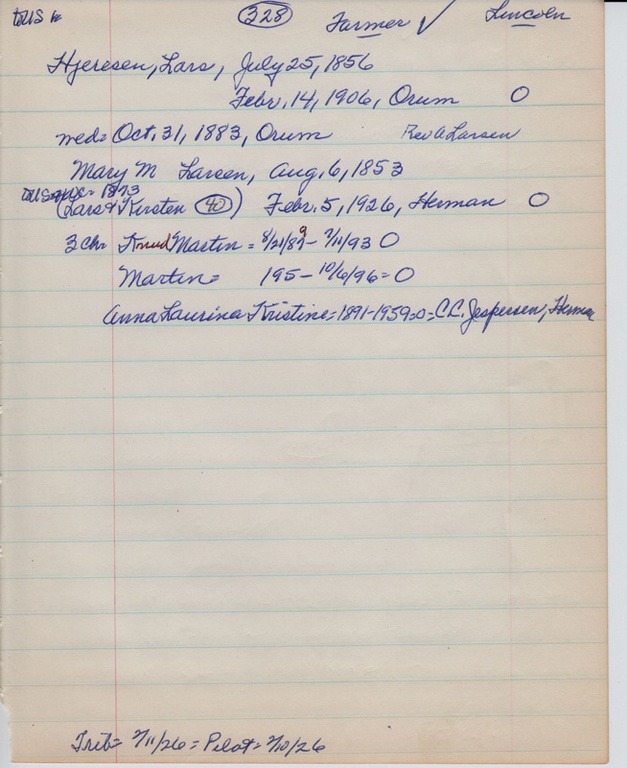 to US (328) Farmer ✓ Lincoln
Hjeresen, Lars, July 25, 1856
Febr. 14, 1906, Orum O
med= Oct. 31, 1883, Orum Rev A Larsen
Mary M Larsen, Aug. 6, 1853
to US 1873
(Lars & Kirsten (40)) Febr. 5, 1926, Herman O
3 chr Knud Martin = 8/21/89 - 2/11/93 O
Martin = 195 - 10/6/96 = O
Anna Laurina Kristine = 1891-1959=O= C.L. Jespersen, Herman
Trib= 2/11/26 = Pilot = 2/10/26